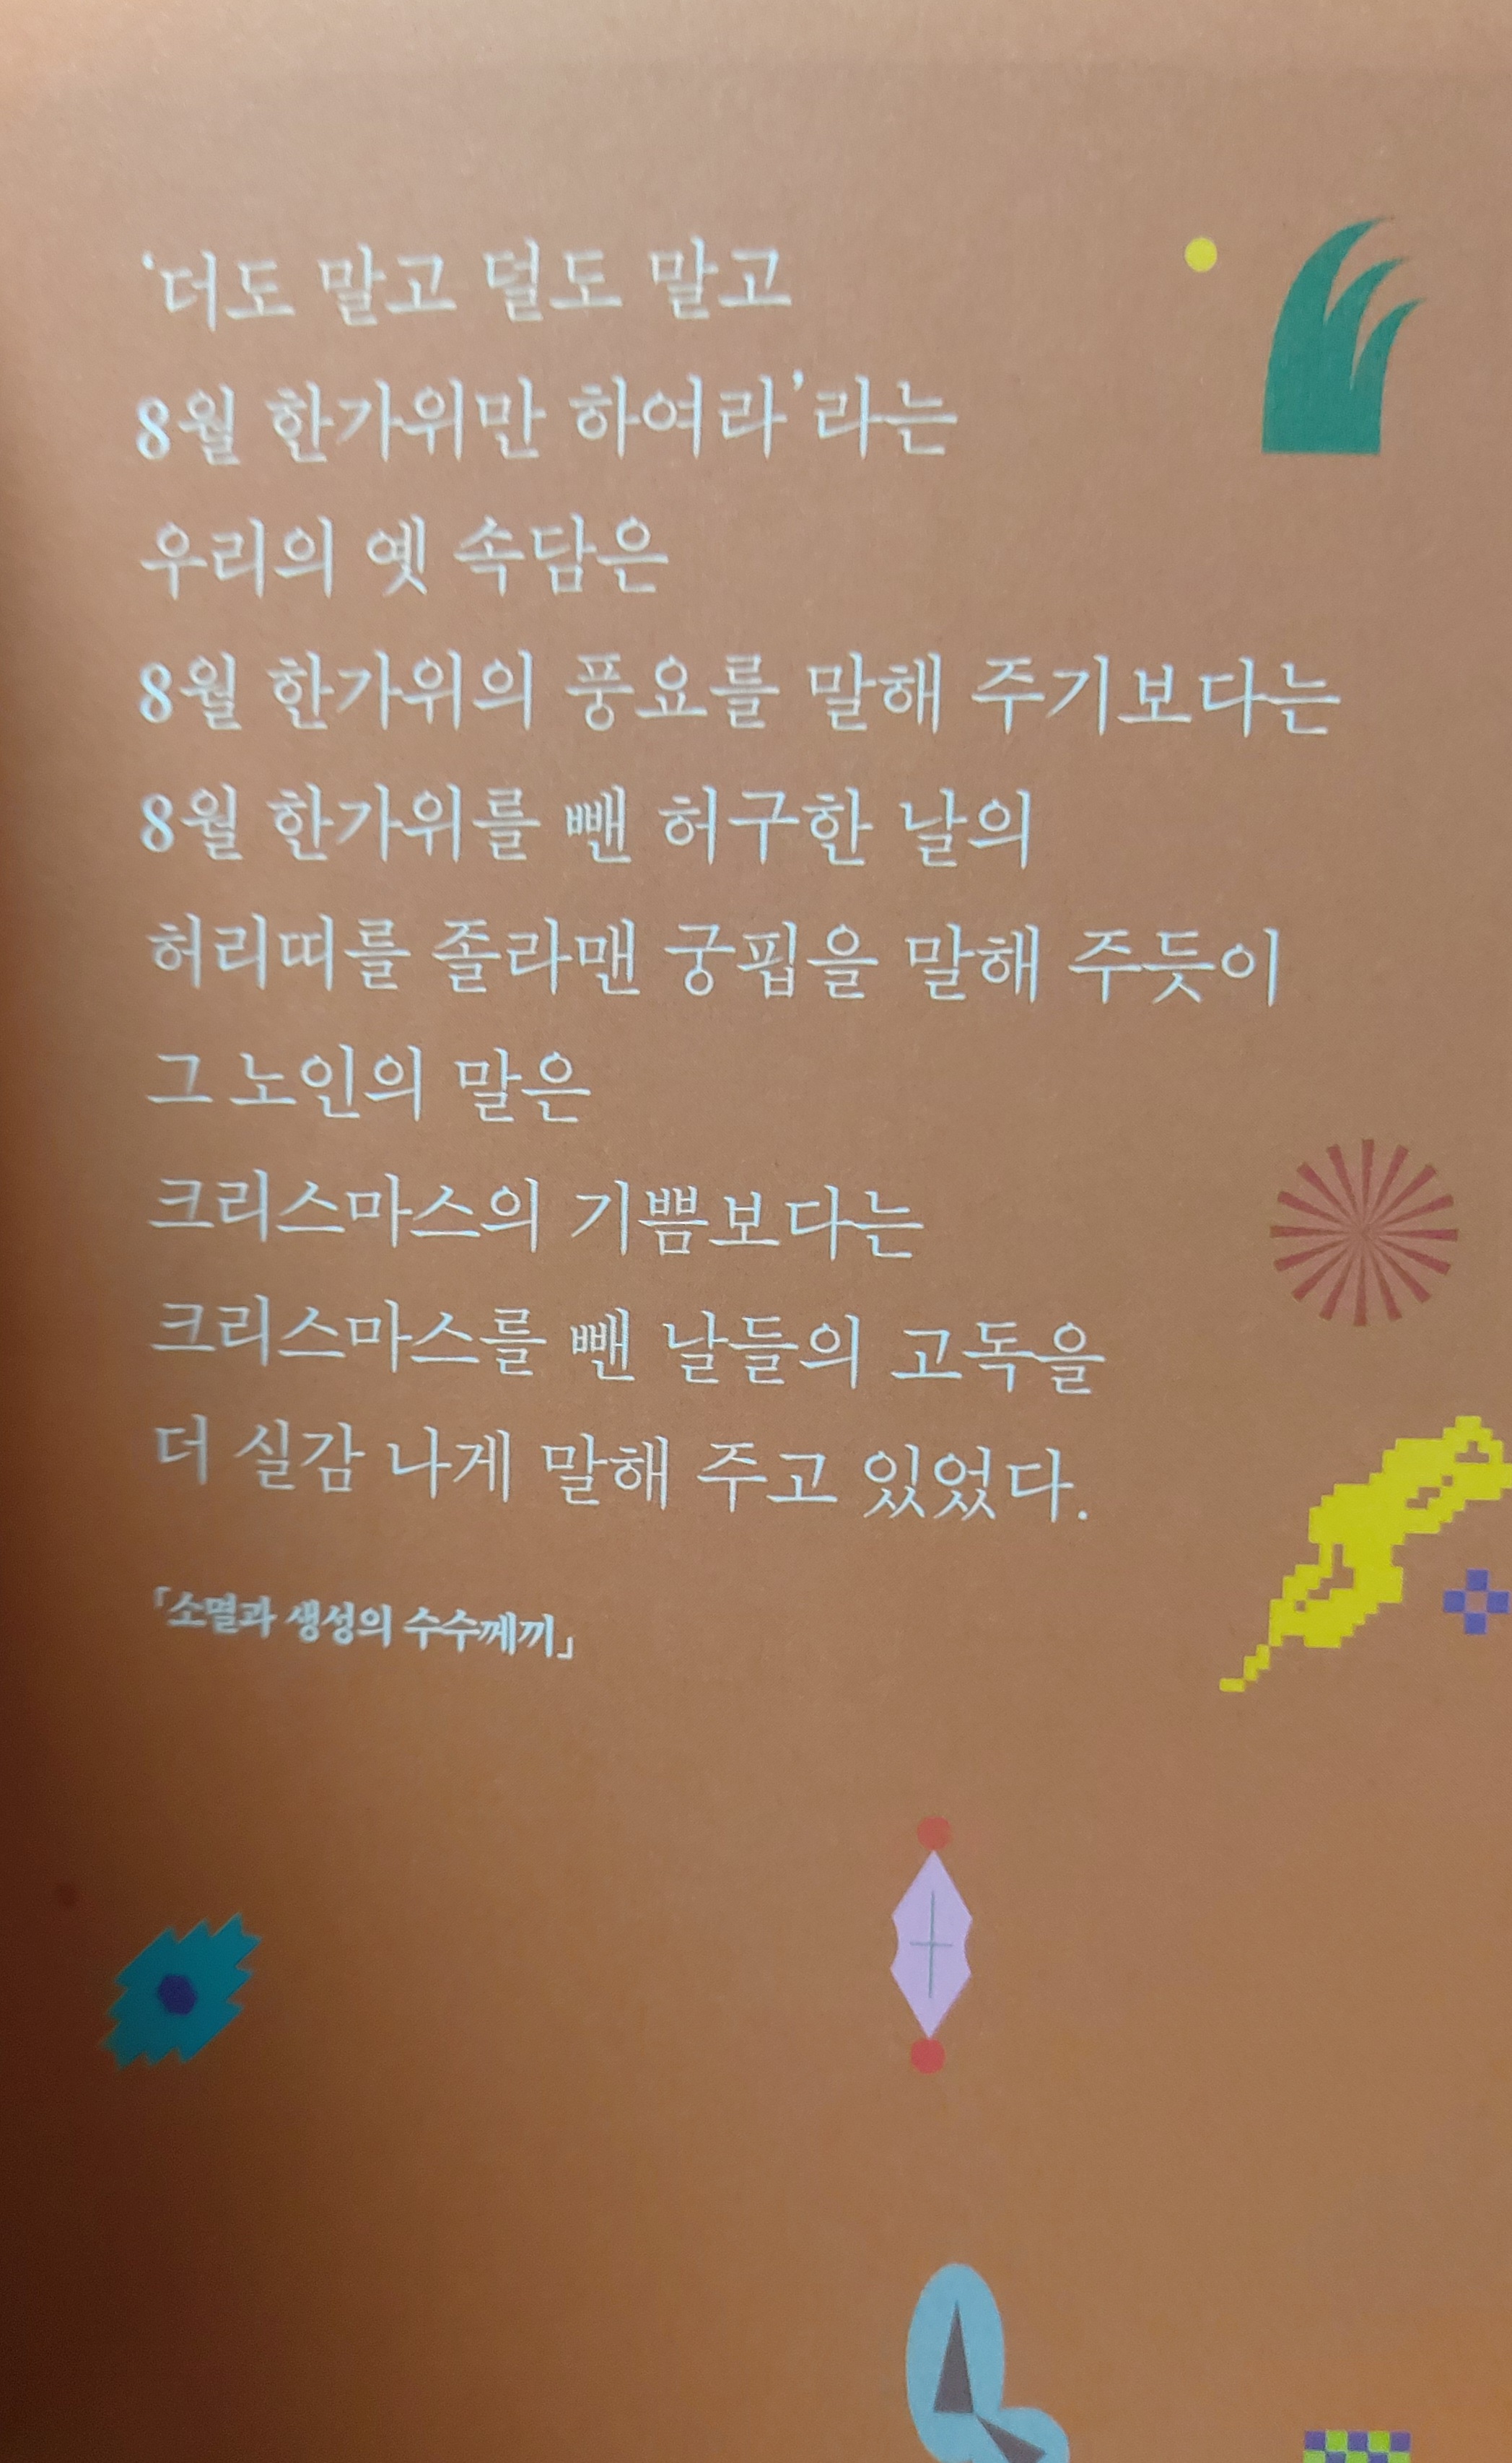 ‘더도 말고 덜도 말고
8월 한가위만 하여라’라는
우리의 옛 속담은
8월 한가위의 풍요를 말해 주기보다는
8월 한가위를 뺀 허구한 날의
허리띠를 졸라맨 궁핍을 말해 주듯이
그 노인의 말은
크리스마스의 기쁨보다는
크리스마스를 뺀 날들의 고독을
더 실감 나게 말해 주고 있었다.
「소멸과 생성의 수수께끼」